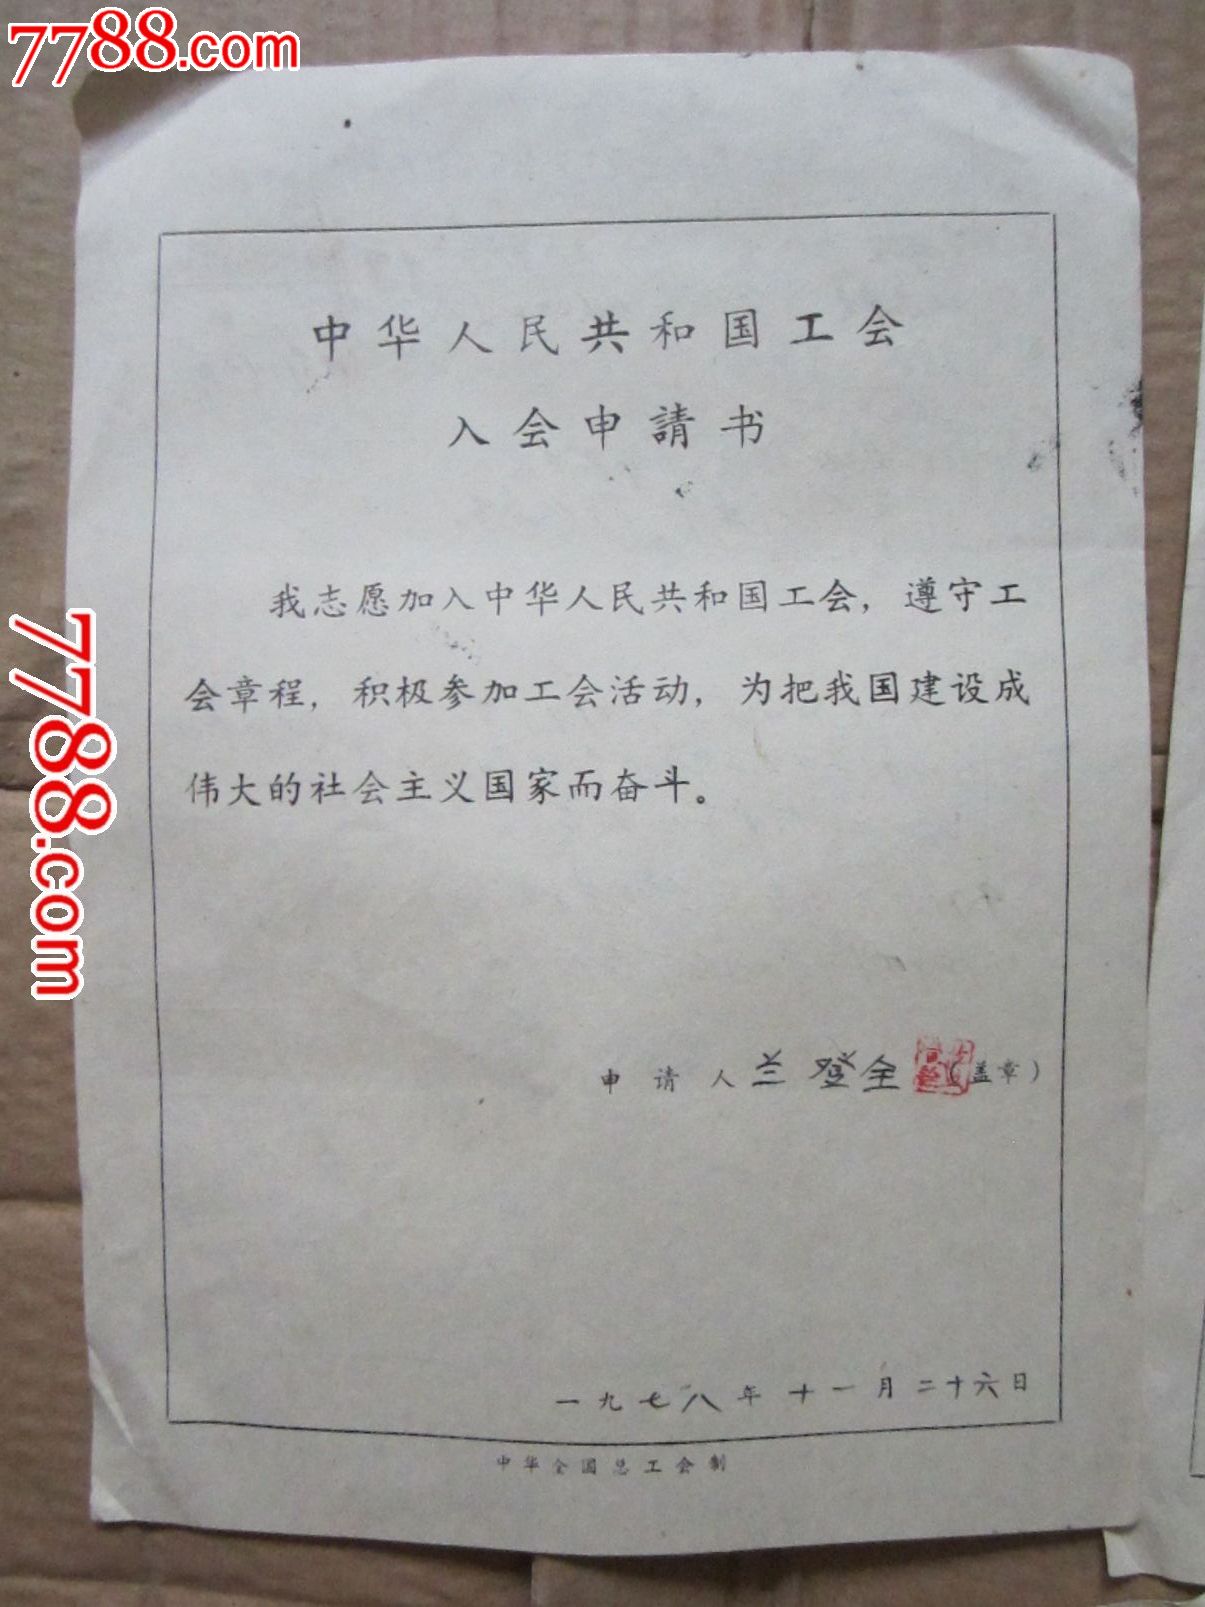 7788.com
中华人民共和国工会
入会申請书
我志愿加入中华人民共和国工会，遵守工
会章程，积极参加工会活动，为把我国建设成
伟大的社会主义国家而奋斗。
7788.com
申请人 兰登全 （盖章）
一九七八年十一月二十六日
中华全国总工会制